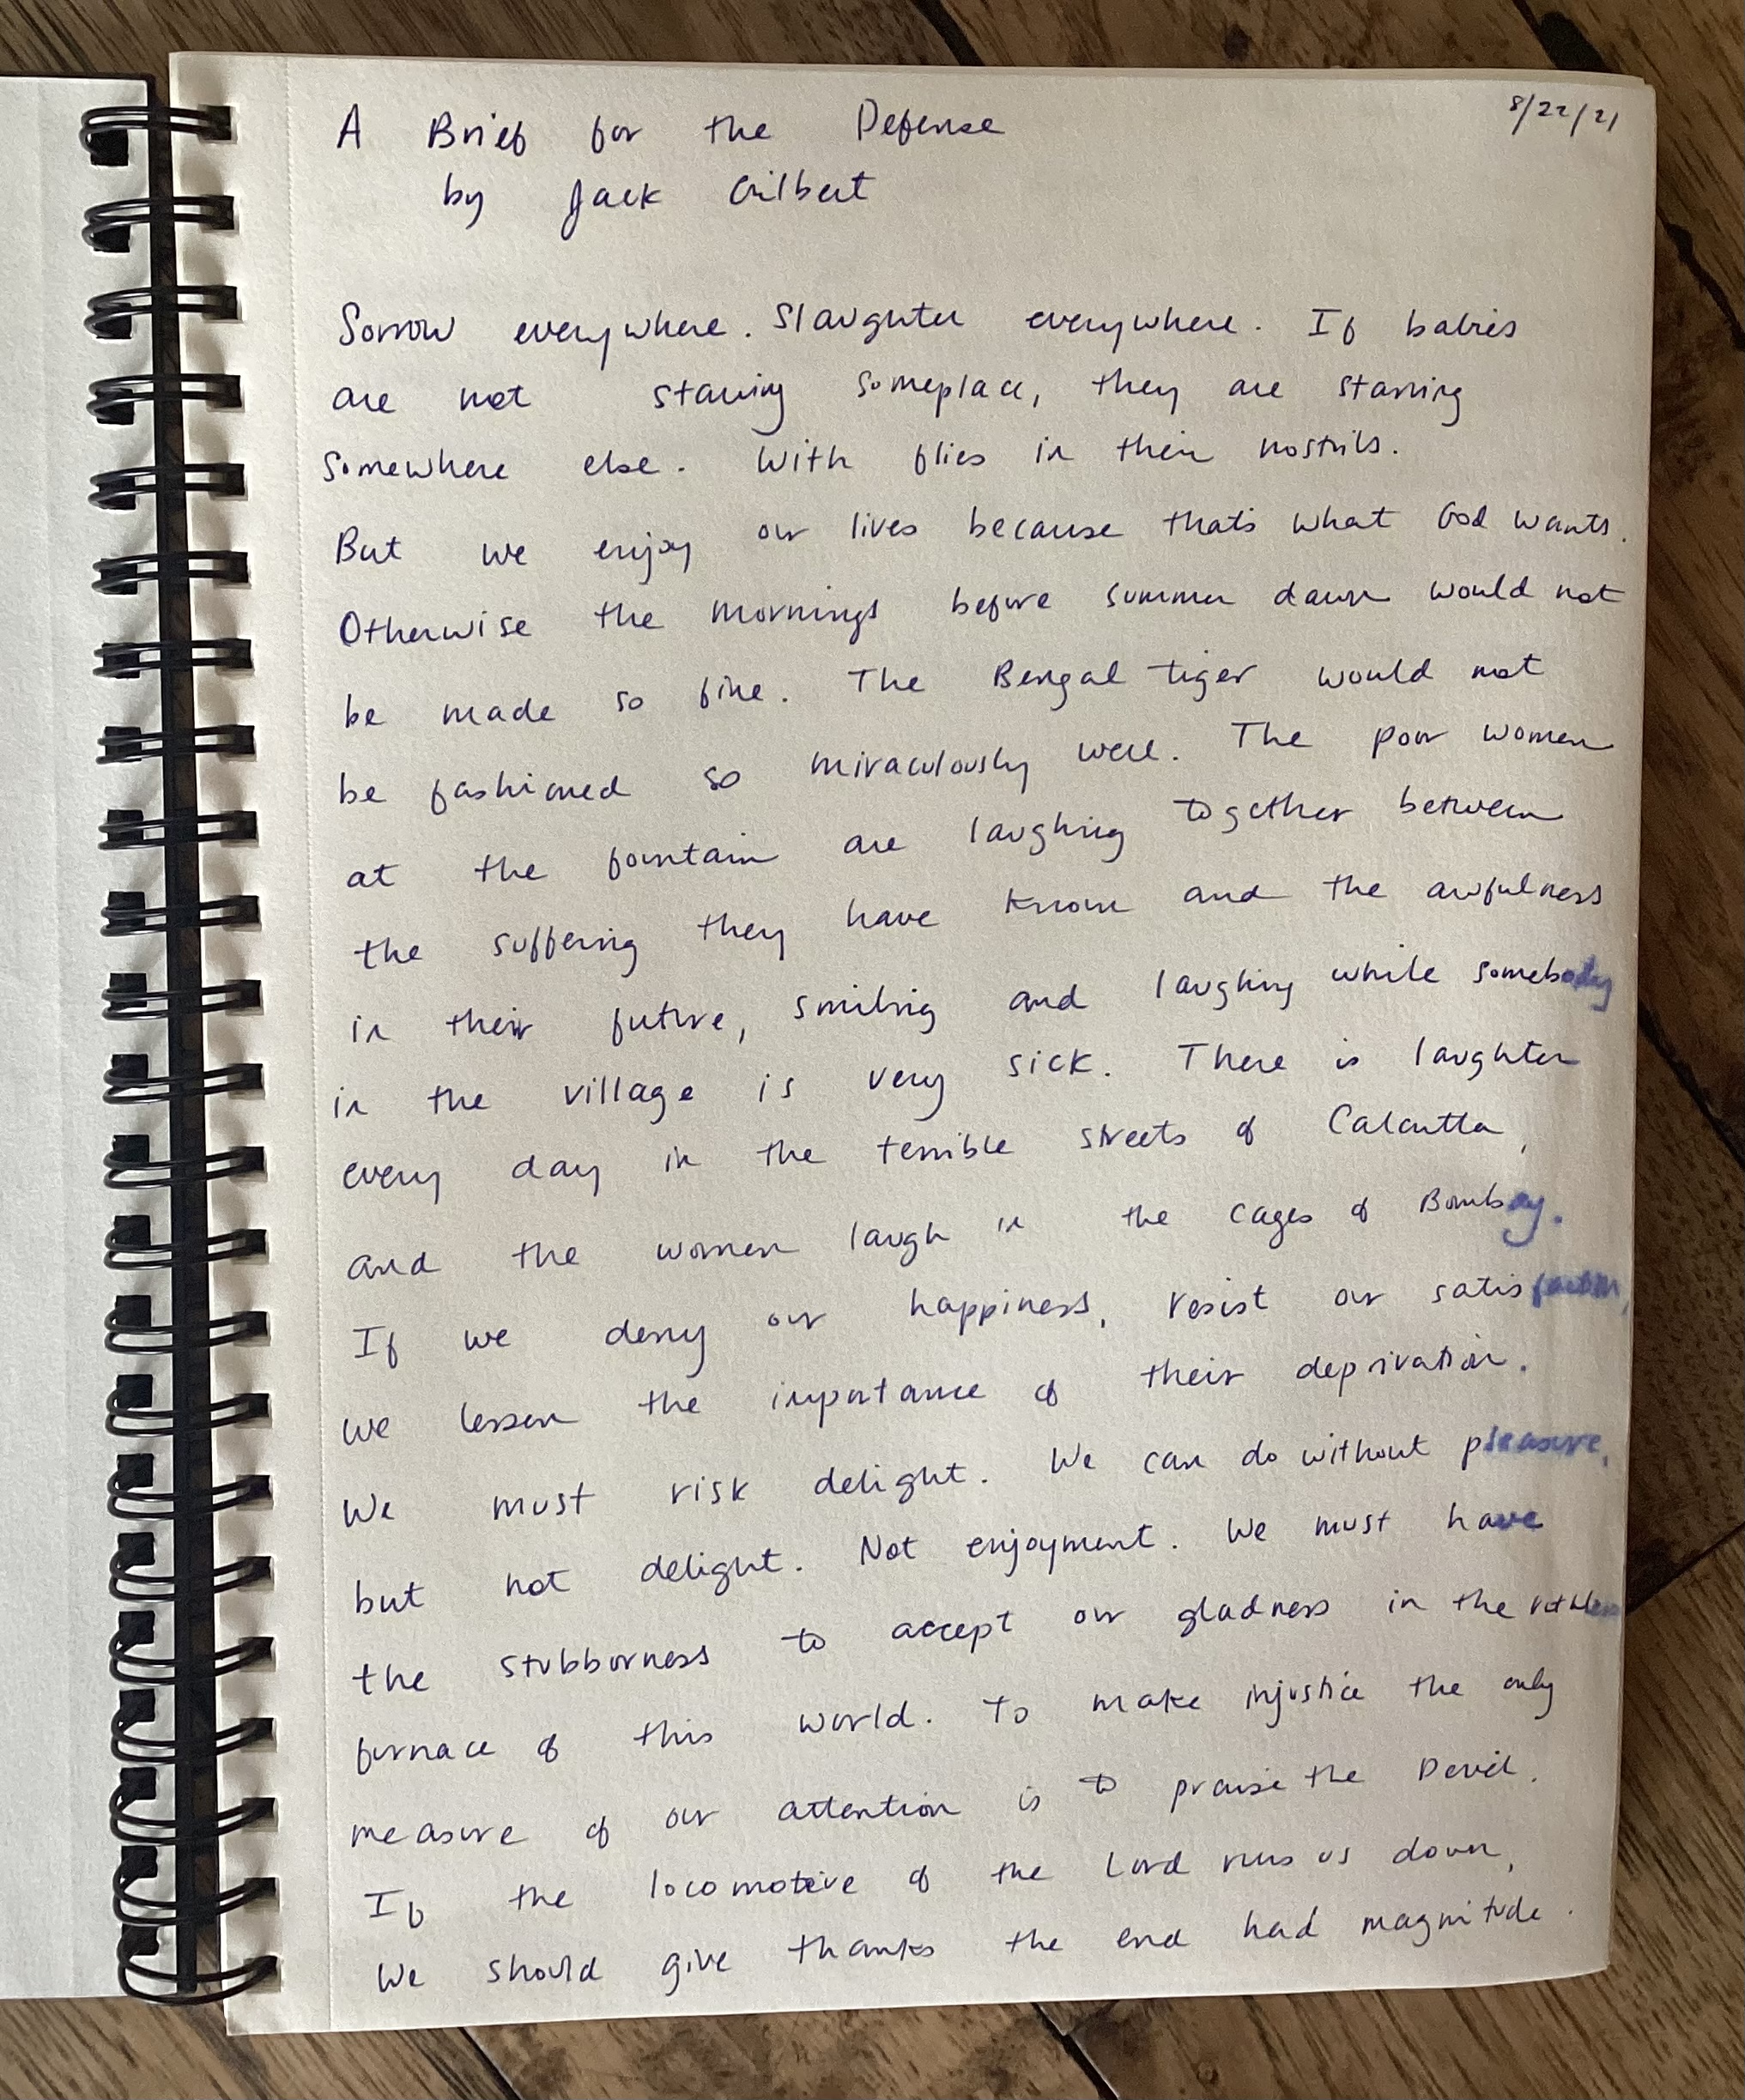 8/22/21
A Brief for the Defense
by Jack Gilbert
Sorrow everywhere. Slaughter everywhere. If babies
are not starving someplace, they are starving
somewhere else. With flies in their nostrils.
But we enjoy our lives because thats what God wants.
Otherwise the mornings before summer dawn would not
be made so fine. The Bengal tiger would not
be fashioned so miraculously well. The poor women
at the fountain are laughing together between
the suffering they have known and the awfulness
in their future, smiling and laughing while somebody
in the village is very sick. There is laughter
every day in the terrible streets of Calcutta,
and the women laugh in the cages of Bombay.
If we deny our happiness, resist our satisfaction,
we lessen the importance of their deprivation.
We must risk delight. We can do without pleasure,
but not delight. Not enjoyment. We must have
the stubborness to accept our gladness in the ruthless
furnace of this world. To make injustice the only
measure of our attention is to praise the Devil.
If the locomotive of the Lord runs us down,
We should give thanks the end had magnitude.